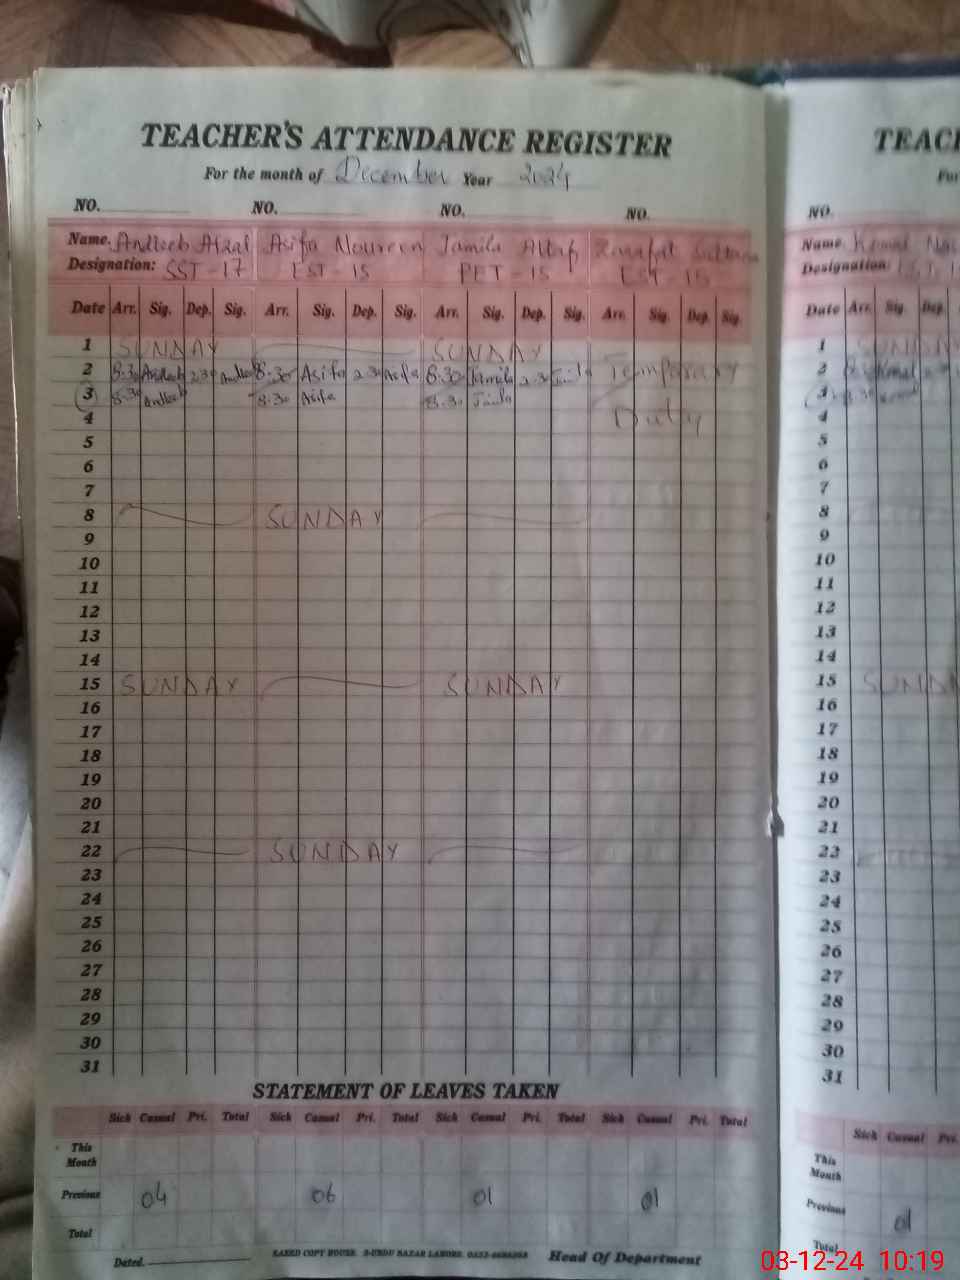 TEACHER'S ATTENDANCE REGISTER
For the month of December Year 2024
NO. NO. NO. NO.
Name. Andleeb Afzal Asifa Noureen Jamila Altaf Sultana
Designation: SST-17 EST-15 PET-15 EST-15
Date Arr. Sig. Dep. Sig. Arr. Sig. Dep. Sig. Arr. Sig. Dep. Sig. Arr. Sig. Dep. Sig.
1 SUNDAY SUNDAY
2 8:30 Andleeb 2:30 Andleeb 8:30 Asifa 2:30 Asifa 8:30 Jamila 2:30 Jamila Temporary
3 8:30 Andleeb 8:30 Asifa 8:30 Jamila
4 Duty
5
6
7
8 SUNDAY
9
10
11
12
13
14
15 SUNDAY SUNDAY
16
17
18
19
20
21
22 SUNDAY
23
24
25
26
27
28
29
30
31
STATEMENT OF LEAVES TAKEN
Sick Casual Pri. Total Sick Casual Pri. Total Sick Casual Pri. Total Sick Casual Pri. Total
This Month
Previous 04 06 01 01
Total
Dated. SAEED COPY HOUSE. URDU BAZAR LAHORE. Head Of Department
TEAC
For
NO.
Name. Komal
Designation: EST-1
Date Arr. Sig. Dep.
1 SUNDAY
2
3 8:30
4
5
6
7
8
9
10
11
12
13
14
15 SUNDA
16
17
18
19
20
21
22
23
24
25
26
27
28
29
30
31
Sick Casual Pri.
This Month
Previous 01
Total
03-12-24 10:19